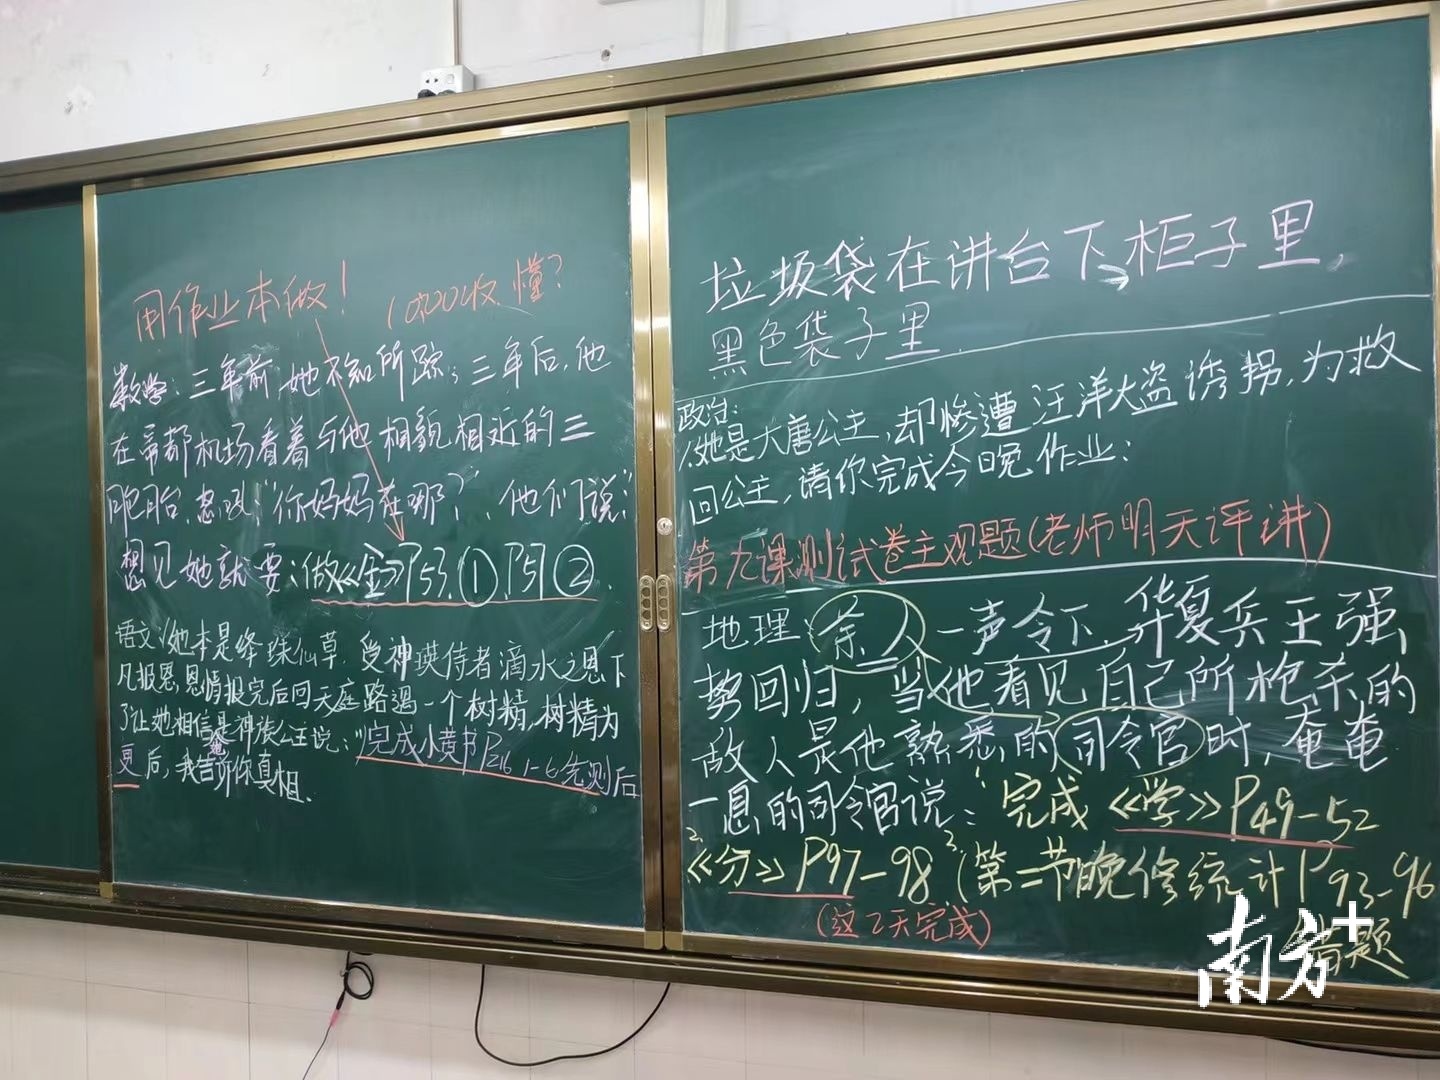 用作业本做！
10:00收 懂？
数学：三年前，她不知所踪；三年后，他
在帝都机场看着与他相貌相近的三
胞胎，怒吼：“你妈妈在哪？”，他们说：“
想见她就要：做《全》P53.① P57②.
语文：她本是绛珠仙草，受神瑛侍者滴水之恩下
凡报恩，恩情报完后回天庭路遇一个树精，树精为
了让她相信是神族公主说：“完成小黄书P216 1-6先测后
更后，我会告诉你真相.
垃圾袋在讲台下柜子里，
黑色袋子里.
政治：
1.她是大唐公主，却惨遭汪洋大盗诱拐，为救
回公主，请你完成今晚作业：
第九课测试卷主观题(老师明天评讲)
地理：余人一声令下，华夏兵王强
势回归，当他看见自己所枪杀的
敌人是他熟悉的司令官时，奄奄
一息的司令官说：1.完成《学》P49-52
2.《分》P97-98 3.(第二节晚修统计P93-96
(这2天完成)
错题
南方+